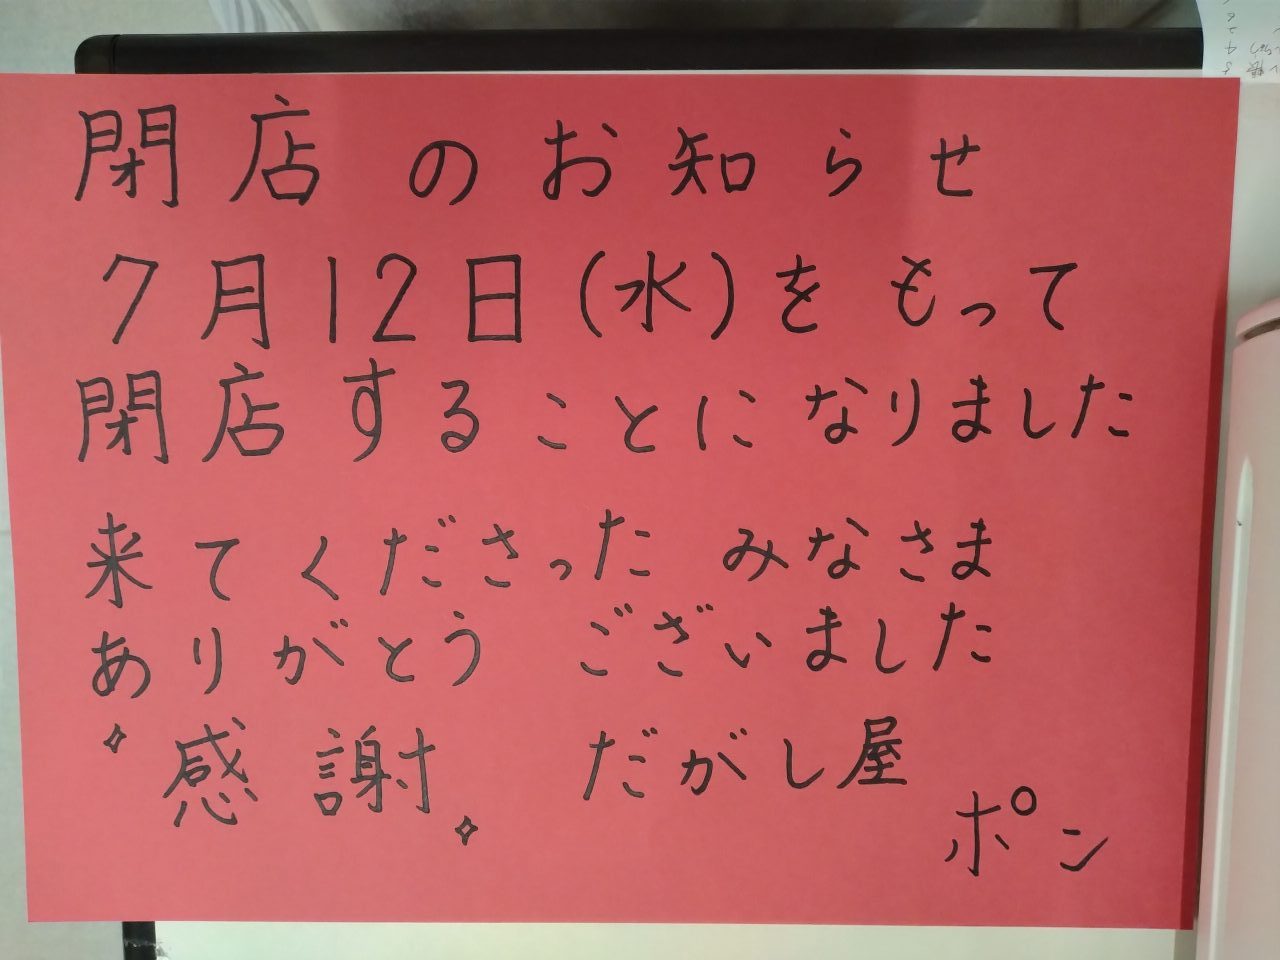 閉店のお知らせ
7月12日(水)をもって
閉店することになりました
来てくださったみなさま
ありがとうございました
感謝 だがし屋
ポン